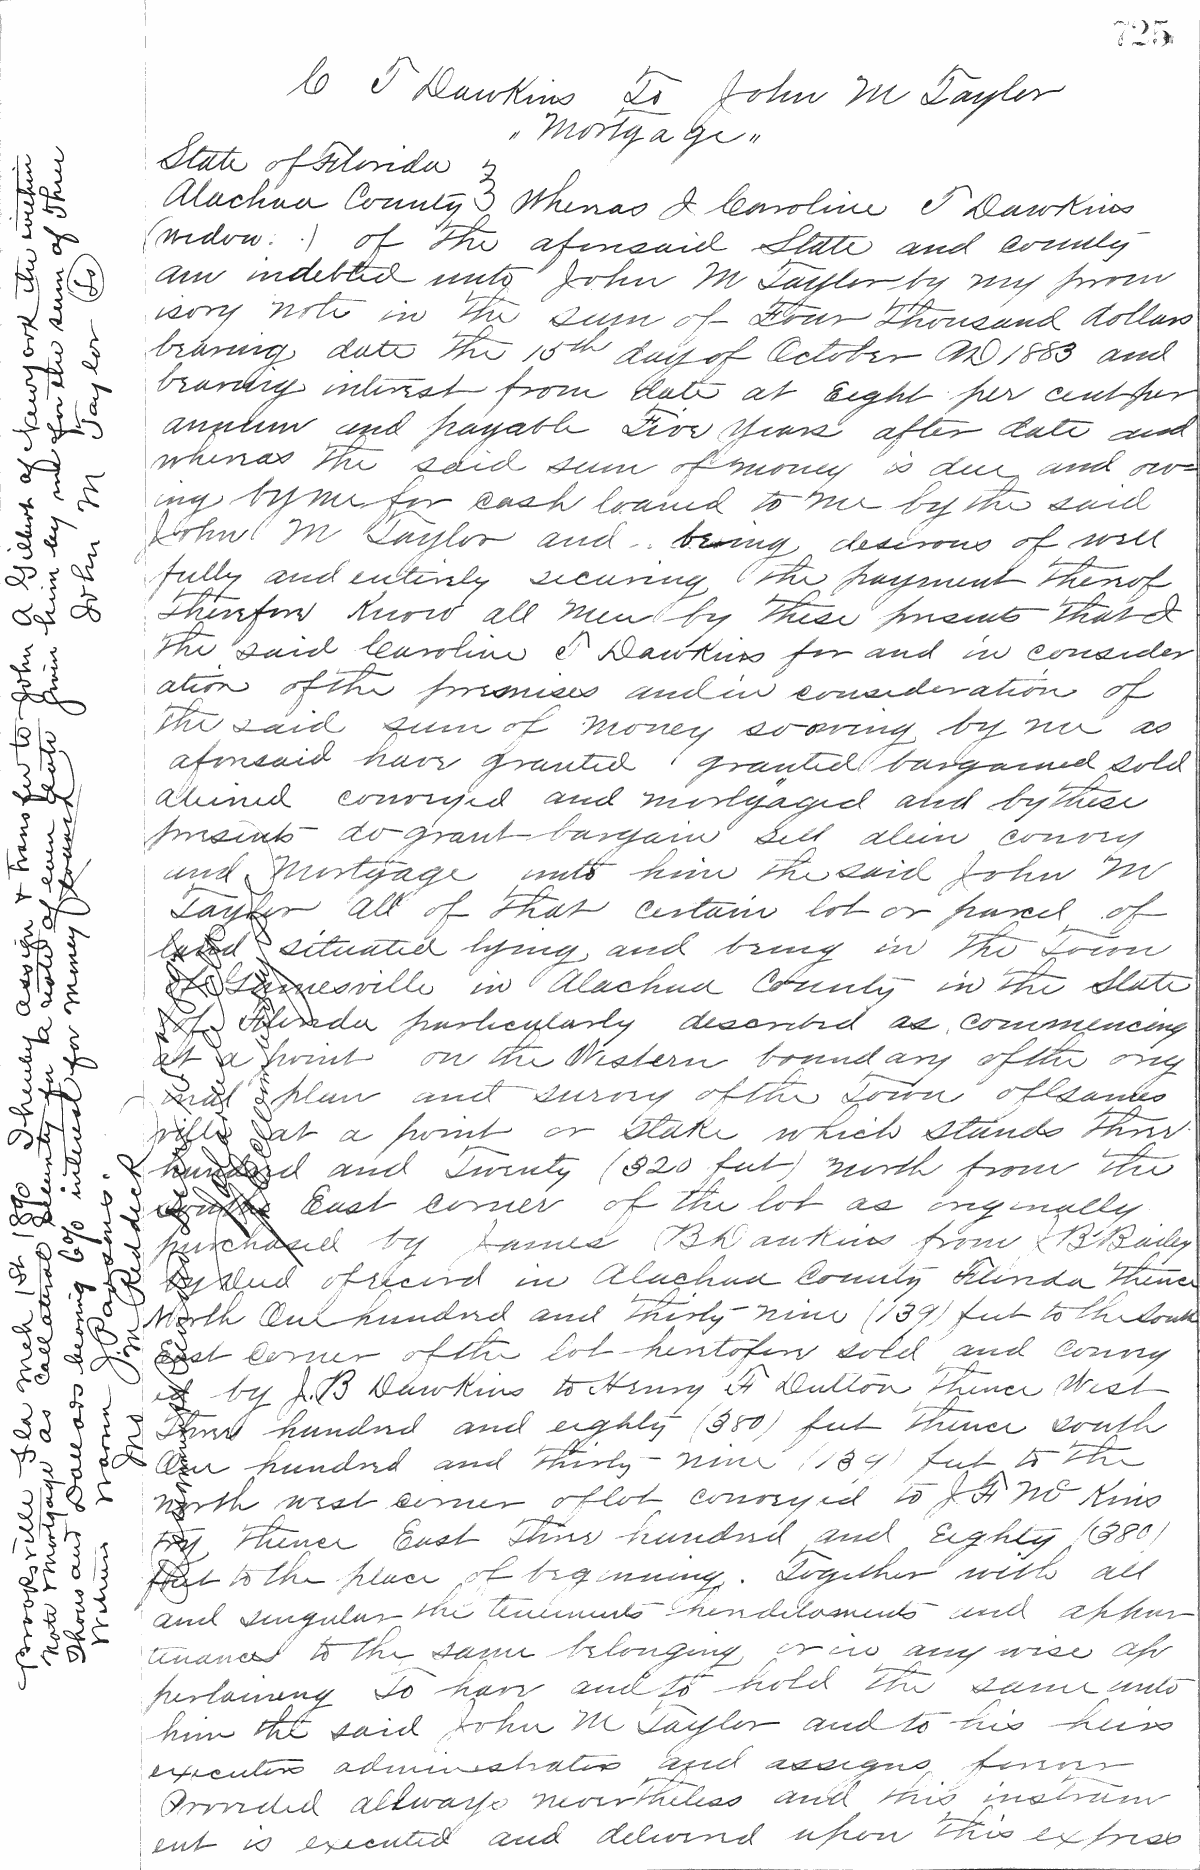 725
C T Dawkins To John M Taylor
"Mortgage"
State of Florida }
Alachua County } Whereas I Caroline T Dawkins
(widow) of the aforesaid State and county
am indebted unto John M Taylor by my prom
isory note in the sum of Four Thousand dollars
bearing date the 15th day of October AD 1883 and
bearing interest from date at Eight per cent per
annum and payable Five years after date and
whereas the said sum of money is due and ow=
ing by me for cash loaned to me by the said
John M Taylor and being desirous of well
fully and entirely securing the payment thereof
Therefore Know all Men by These presents that I
the said Caroline T Dawkins for and in consider
ation of the premises and in consideration of
the said sum of money so owing by me as
aforesaid have granted granted bargained sold
aliened conveyed and mortgaged and by these
presents do grant bargain sell alien convey
and Mortgage unto him the said John M
Taylor all of that certain lot or parcel of
land situated lying and being in the Town
of Gainesville in Alachua County in the State
of Florida particularly described as commencing
at a point on the Western boundary of the orig
inal plan and survey of the Town of Gaines
ville at a point or stake which stands three
hundred and Twenty (320 feet) north from the
South East corner of the lot as originally
purchased by James B Dawkins from B Bailey
by deed of record in Alachua County Florida Thence
North One hundred and thirty nine (139) feet to the South
East corner of the lot heretofore sold and convey
ed by J. B Dawkins to Henry F Dutton Thence West
Three hundred and eighty (380) feet thence south
One hundred and thirty nine (139) feet to the
north west corner of lot conveyed to J F McKins
try thence East Three hundred and Eighty (380)
feet to the place of beginning. Together with all
and singular the tenements hereditaments and appur
tenances to the same belonging or in any wise ap
pertaining To have and to hold the same unto
him the said John M Taylor and to his heirs
executors administrators and assigns forever
Provided allways nevertheless and this instrum
ent is executed and delivered upon this express
Brooksville Fla Mch 1st 1890 I hereby assign & transfer to John A Gilbert of New york the within
note & mortgage as Collateral Security for a note of even date given him by me for the sum of Three
Thousand Dollars bearing 6% interest for money loaned John M Taylor
Witness J Parsons.
J M Reddick